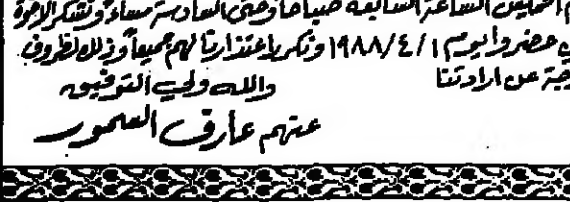 الخميس الساعة السابعة صباحا وحتى السادسة مساء ونشكر الاخوة
حضروا اليوم ١٩٨٨/٤/١ ونكرر اعتذارنا لهم جميعا وذلك لظروف
عن ارادتنا
والله ولي التوفيق
عنهم عارف